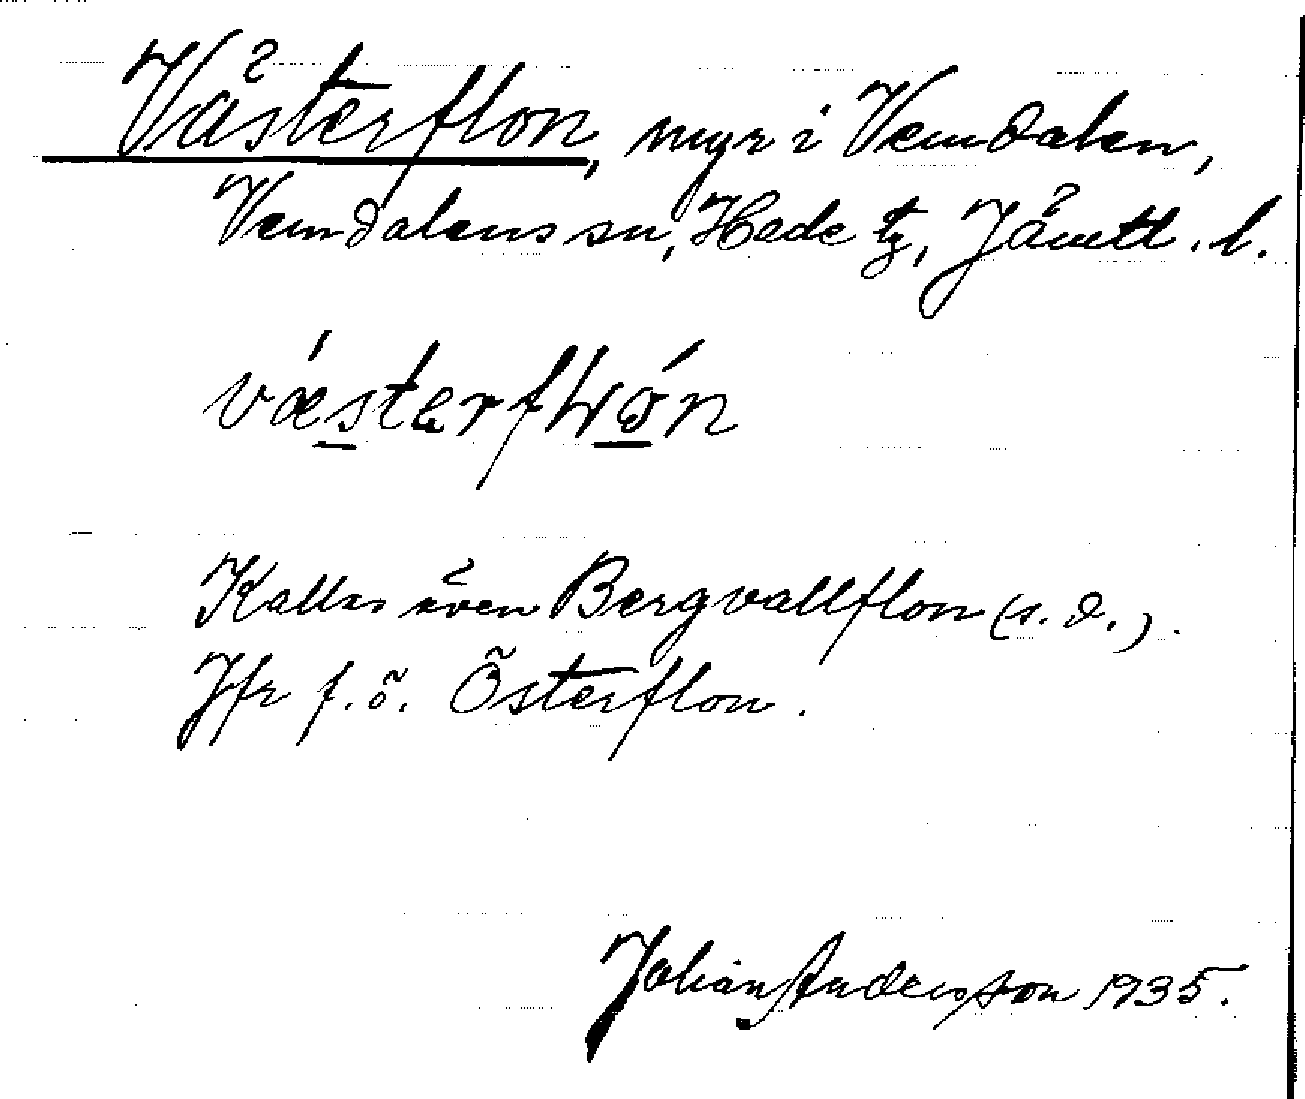 Västerflon, myr i Vemdalen,
Vemdalens sn, Hede tg, Jämtl. l.
Kallas även Bergvallflon (s. d.).
Jfr f. ö. Österflon.
Johan Andersson 1935.